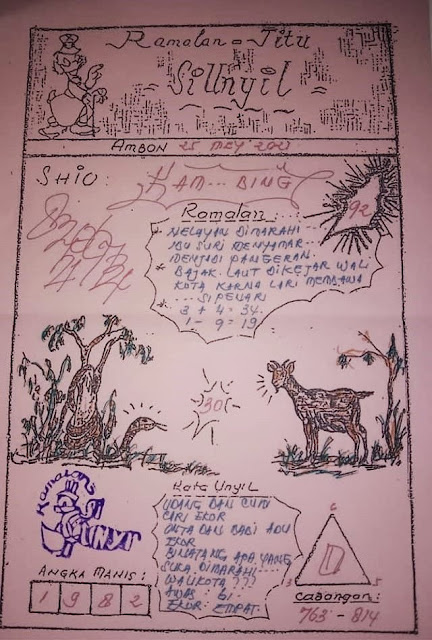 Ramalan - Jitu
Si Unyil
AMBON 25 MEY 2021
SHIO: KAM... BING
92
Ramalan
NELAYAN DIMARAHI
IBU SURI MENYAMAR...
MENJADI PANGERAN.
BAJAK LAUT DIKEJAR WALI
KOTA KARNA LARI MEMBAWA
SI PENARI
3 + 4 = 34.
1 - 9 = 19
30
Kata Unyil
UDANG DAN CUMI
CARI EKOR
ONTA DAN BABI ADU
EKOR
BINATANG APA YANG
SUKA DIMARAHI...
WALIKOTA ???
AWAS : 61.
EKOR EMPAT.
Ramalan
UNYIL
ANGKA MANIS :
1 9 8 2
6
3 5
Cabangan :
763 - 814